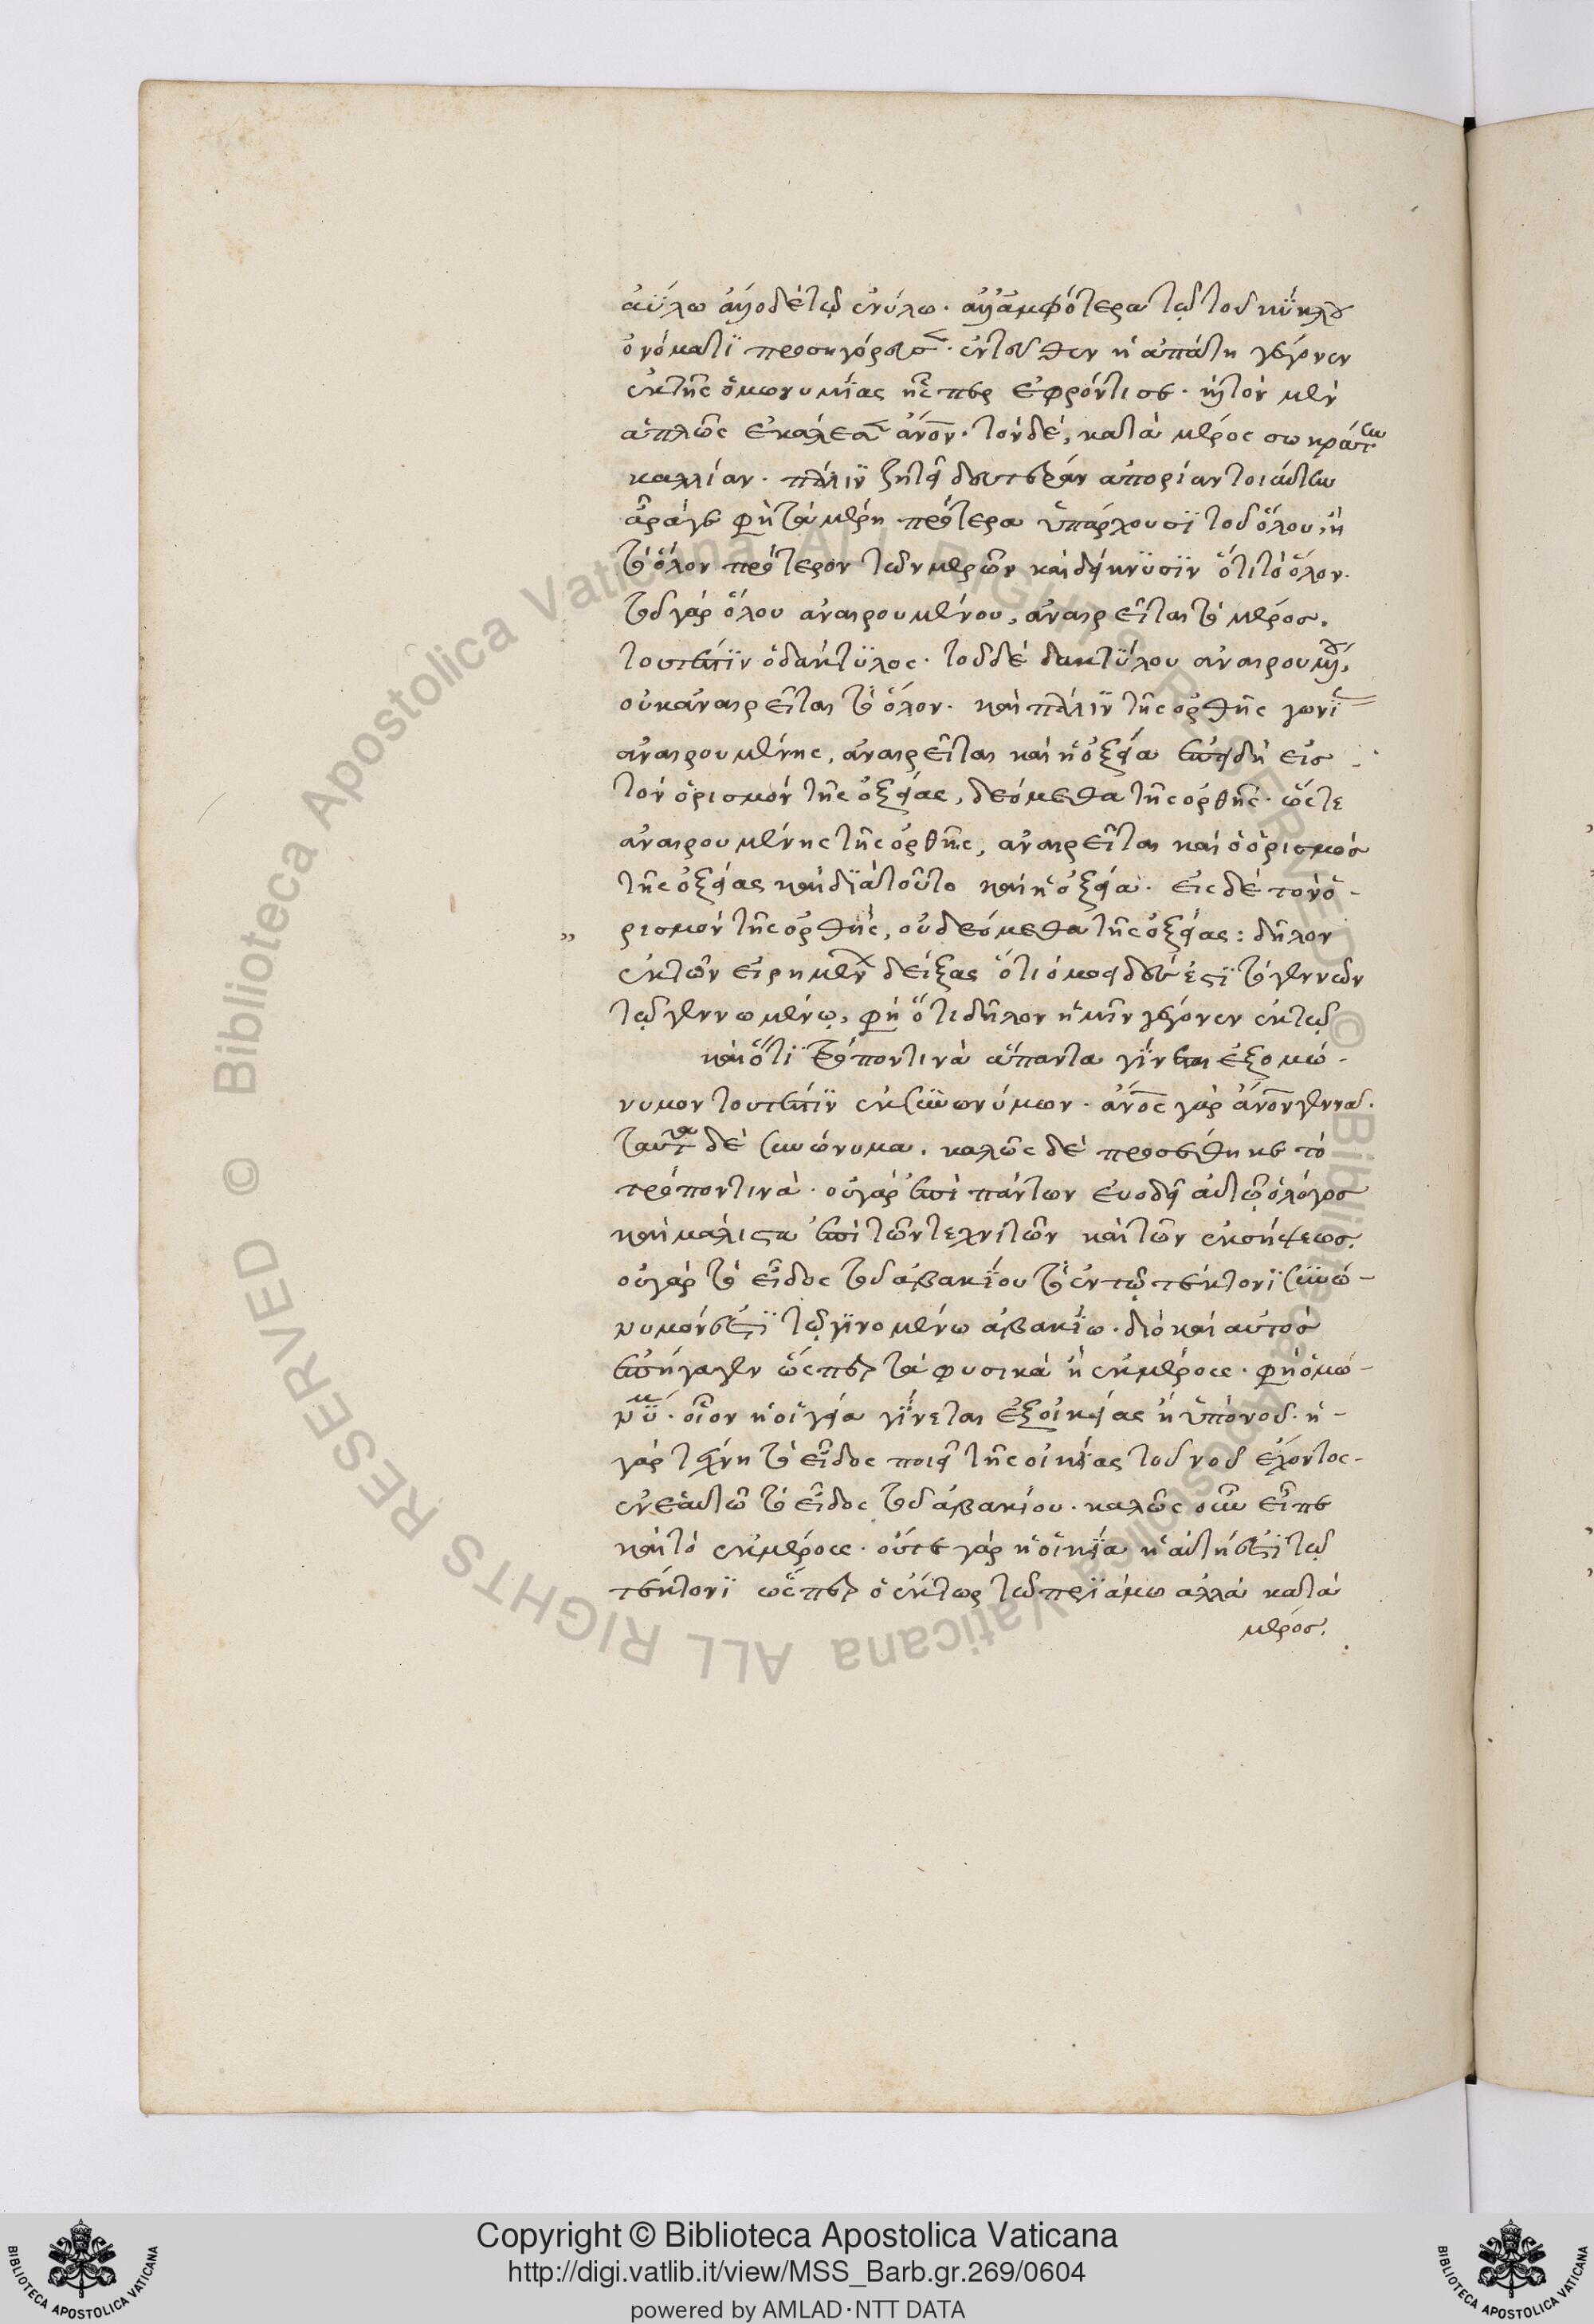 ἀΰλω ἀλλὸ δὲ τῶ ἐνύλω. ἀλλ' ἀμφότερα τῶ τοῦ κύκλου
ὀνόματι προσηγόρευσε. ἐντεῦθεν ἡ ἀπάτη γέγονεν
ἐκ τῆς ὁμωνυμίας ἧσπερ ἐφρόντισε. τὸν μὲν
ἁπλῶς ἐκάλεσεν ἄνον. τὸν δὲ, κατὰ μέρος σωκράτην
καλλίαν. πάλιν ζητεῖ δευτέραν ἀπορίαν τοιαύτην
ἆρά γε φη τὰ μέρη πρότερα ὑπάρχουσι τοῦ ὅλου, ἢ
τὸ ὅλον πρότερον τῶν μερῶν καὶ δείκνυσιν ὅτι τὸ ὅλον.
τοῦ γὰρ ὅλου ἀναιρουμένου, ἀναιρεῖται τὸ μέρος.
τουτέστιν ὁ δάκτυλος. τοῦ δὲ δακτύλου ἀναιρουμένου,
οὐκ ἀναιρεῖται τὸ ὅλον. καὶ πάλιν τῆς ὀρθῆς γωνίας
ἀναιρουμένης, ἀναιρεῖται καὶ ἡ ὀξεῖα ἐπειδὴ εἰς
τὸν ὁρισμὸν τῆς ὀξείας, δεόμεθα τῆς ὀρθῆς. ὥστε
ἀναιρουμένης τῆς ὀρθῆς, ἀναιρεῖται καὶ ὁ ὁρισμὸς
τῆς ὀξείας καὶ διὰ τοῦτο καὶ ἡ ὀξεῖα. εἰς δὲ τὸν ὁ-
ρισμὸν τῆς ὀρθῆς, οὐ δεόμεθα τῆς ὀξείας: δῆλον
ἐκ τῶν εἰρημένων δείξας ὅτι ὁμοειδές ἐστι τὸ γεννῶν
τῶ γεννωμένω, φη ὅτι δῆλον ἡμῖν γέγονεν ἐκ τῶ
καὶ ὅτι τρόπον τινὰ ἅπαντα γίνεται ἐξ ὁμώ-
νυμον τουτέστιν ἐκ συνωνύμων. ἄνος γὰρ ἄνον γεννᾶ.
ταῦτα δὲ συνώνυμα. καλῶς δὲ προσέθηκε τὸ
τρόπον τινὰ. οὐ γὰρ ἐπὶ πάντων εὐοδεῖ αὐτῶ ὁ λόγος
καὶ μάλιστα ἐπὶ τῶν τεχνίτων καὶ τῶν ἐκ σήψεως.
οὐ γὰρ τὸ εἶδος τοῦ ἀβακίου τὸ ἐν τῶ τέκτονι συνώ-
νυμόν ἐστι τῶ γινομένω ἀβακίω. διὸ καὶ αὐτὸς
ἐπήγαγεν ὥσπερ τὰ φυσικὰ ἢ ἐκ μέρους. φη ὁμω-
νύμ. οἷον ἡ οἰκεία γίνεται ἐξ οἰκείας ἢ ὑπὸ νοῦ. ἡ
γὰρ τέχνη τὸ εἶδος ποιεῖ τῆς οἰκίας τοῦ νοῦ ἔχοντος
ἐν ἑαυτῶ τὸ εἶδος τοῦ ἀβακίου. καλῶς οὖν εἶπε
καὶ τὸ ἐκ μέρους. οὔτε γὰρ ἡ οἰκία ἡ αὐτή ἐστι τῶ
τέκτονι ὥσπερ ὁ ἕκτωρ τῶ πριάμω ἀλλὰ κατὰ
μέρος.
Copyright © Biblioteca Apostolica Vaticana
http://digi.vatlib.it/view/MSS_Barb.gr.269/0604
powered by AMLAD·NTT DATA